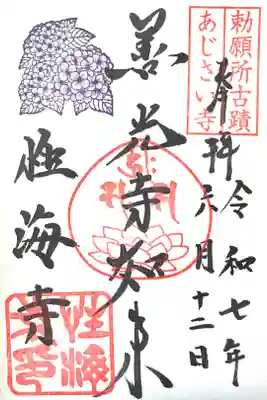 勅願所古蹟
あじさい寺
奉拝
令和七年
六月十二日
善光寺如来
性海寺
性海
寺印